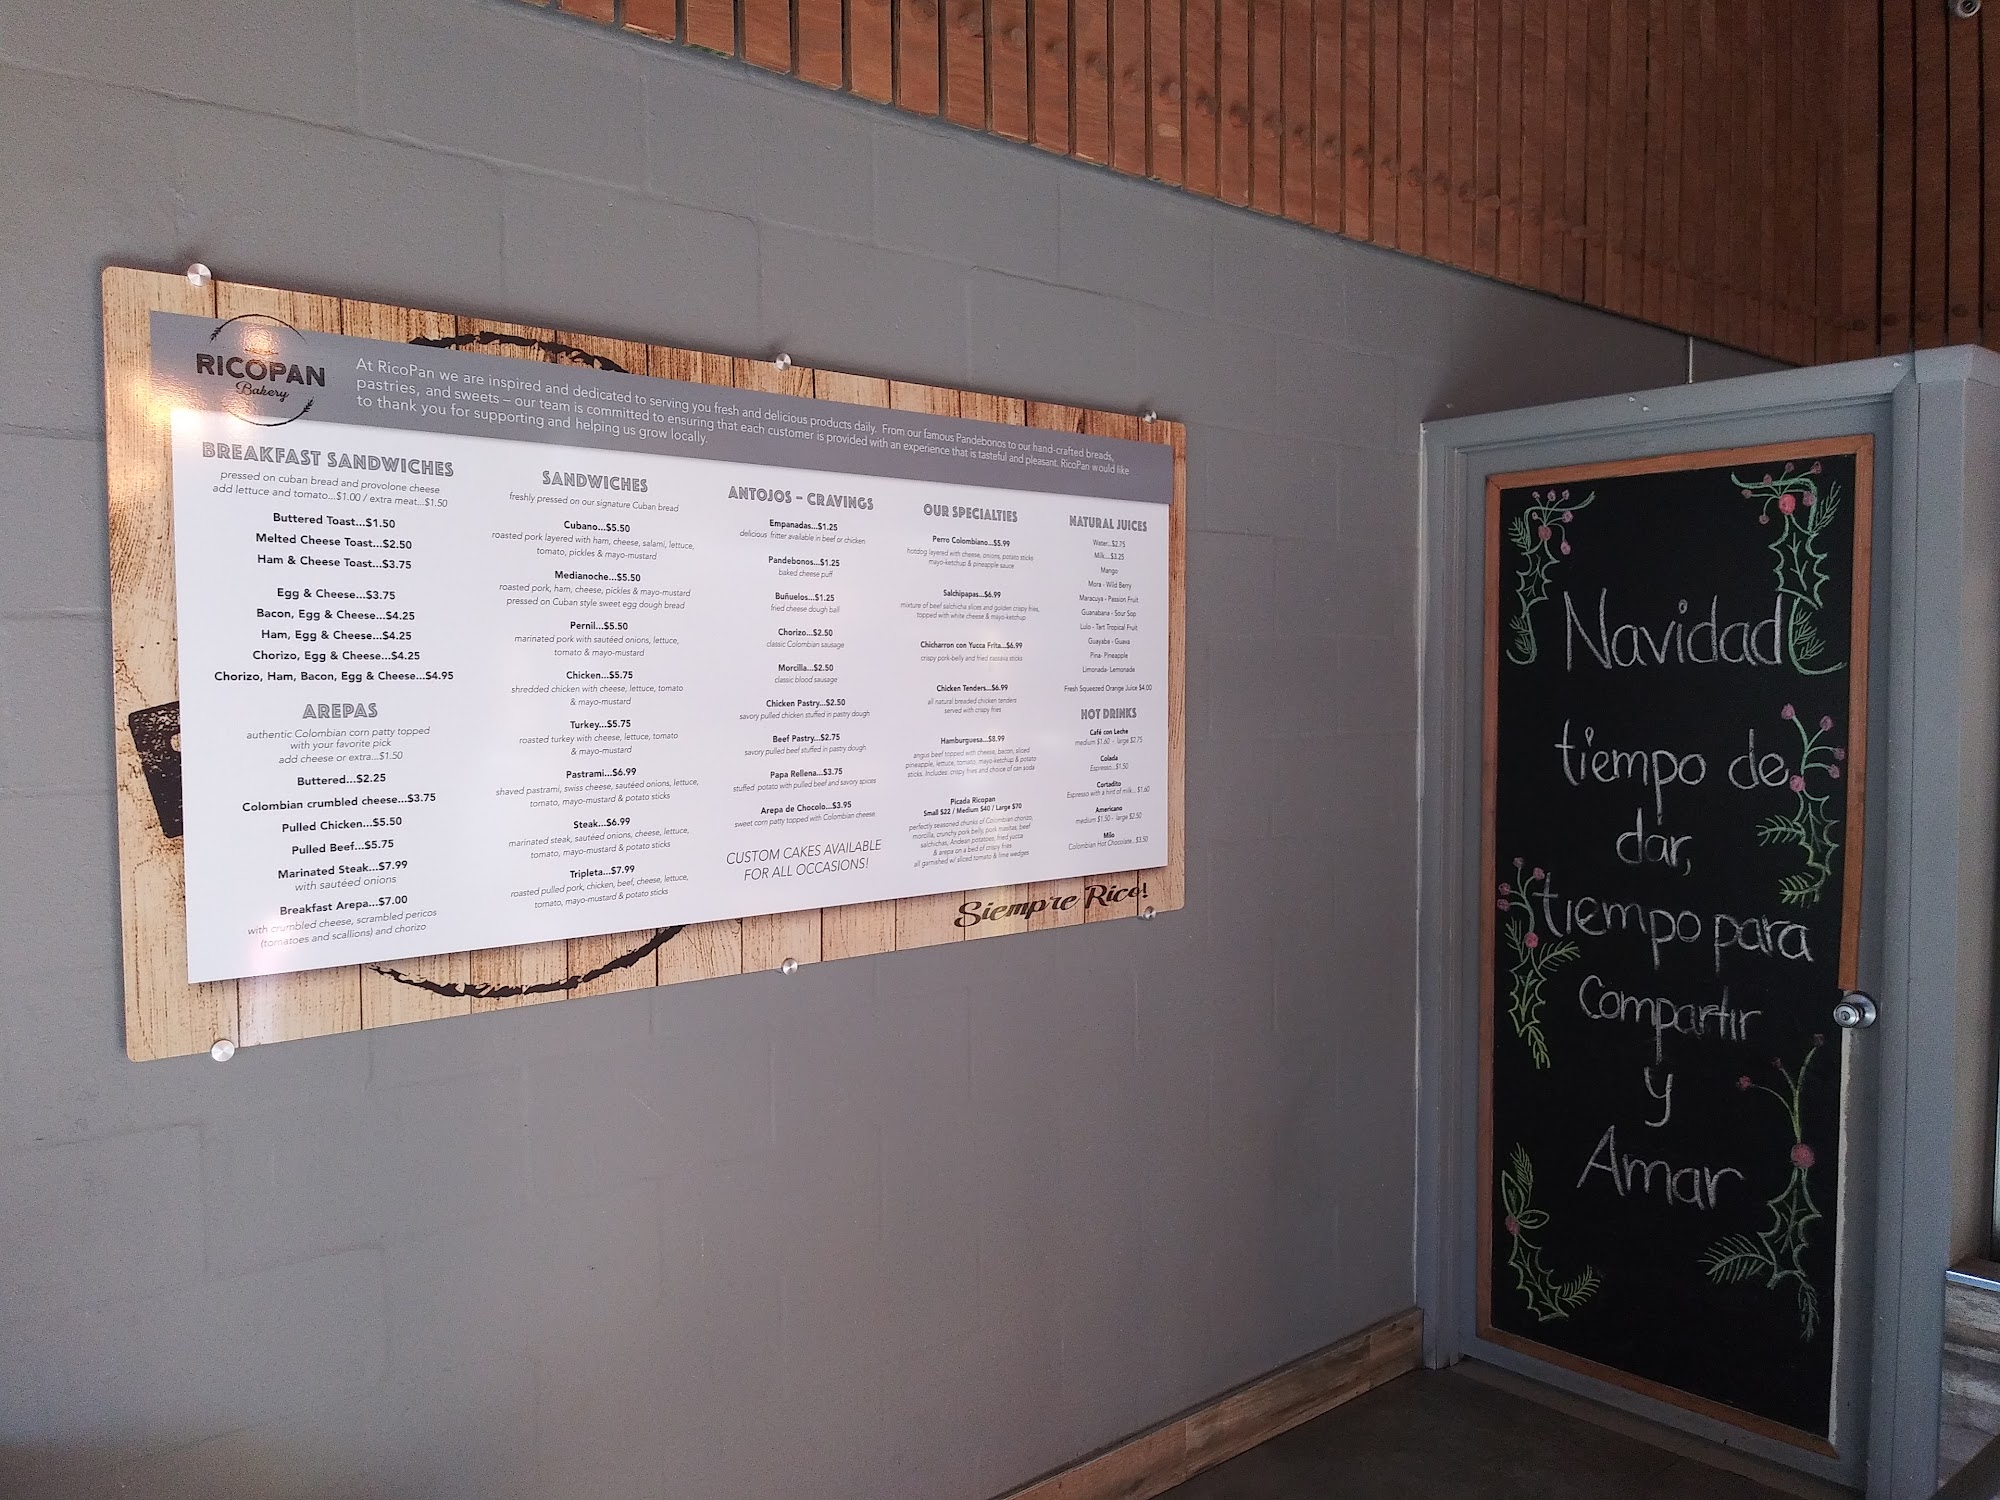 RICOPAN
Bakery
At RicoPan we are inspired and dedicated to serving you fresh and delicious products daily. From our famous Pandebonos to our hand-crafted breads,
pastries, and sweets – our team is committed to ensuring that each customer is provided with an experience that is tasteful and pleasant. RicoPan would like
to thank you for supporting and helping us grow locally.
BREAKFAST SANDWICHES
pressed on cuban bread and provolone cheese
add lettuce and tomato...$1.00 / extra meat...$1.50
Buttered Toast...$1.50
Melted Cheese Toast...$2.50
Ham & Cheese Toast...$3.75
Egg & Cheese...$3.75
Bacon, Egg & Cheese...$4.25
Ham, Egg & Cheese...$4.25
Chorizo, Egg & Cheese...$4.25
Chorizo, Ham, Bacon, Egg & Cheese...$4.95
AREPAS
authentic Colombian corn patty topped
with your favorite pick
add cheese or extra...$1.50
Buttered...$2.25
Colombian crumbled cheese...$3.75
Pulled Chicken...$5.50
Pulled Beef...$5.75
Marinated Steak...$7.99
with sautéed onions
Breakfast Arepa...$7.00
with crumbled cheese, scrambled pericos
(tomatoes and scallions) and chorizo
SANDWICHES
freshly pressed on our signature Cuban bread
Cubano...$5.50
roasted pork layered with ham, cheese, salami, lettuce,
tomato, pickles & mayo-mustard
Medianoche...$5.50
roasted pork, ham, cheese, pickles & mayo-mustard
pressed on Cuban style sweet egg dough bread
Pernil...$5.50
marinated pork with sautéed onions, lettuce,
tomato & mayo-mustard
Chicken...$5.75
shredded chicken with cheese, lettuce, tomato
& mayo-mustard
Turkey...$5.75
roasted turkey with cheese, lettuce, tomato
& mayo-mustard
Pastrami...$6.99
shaved pastrami, swiss cheese, sautéed onions, lettuce,
tomato, mayo-mustard & potato sticks
Steak...$6.99
marinated steak, sautéed onions, cheese, lettuce,
tomato, mayo-mustard & potato sticks
Tripleta...$7.99
roasted pulled pork, chicken, beef, cheese, lettuce,
tomato, mayo-mustard & potato sticks
ANTOJOS - CRAVINGS
Empanadas...$1.25
delicious fritter available in beef or chicken
Pandebonos...$1.25
baked cheese puff
Buñuelos...$1.25
fried cheese dough ball
Chorizo...$2.50
classic Colombian sausage
Morcilla...$2.50
classic blood sausage
Chicken Pastry...$2.50
savory pulled chicken stuffed in pastry dough
Beef Pastry...$2.75
savory pulled beef stuffed in pastry dough
Papa Rellena...$3.75
stuffed potato with pulled beef and savory spices
Arepa de Chocolo...$3.95
sweet corn patty topped with Colombian cheese
CUSTOM CAKES AVAILABLE
FOR ALL OCCASIONS!
OUR SPECIALTIES
Perro Colombiano...$5.99
hotdog layered with cheese, onions, potato sticks
mayo-ketchup & pineapple sauce
Salchipapas...$6.99
mixture of beef salchicha slices and golden crispy fries,
topped with white cheese & mayo-ketchup
Chicharron con Yucca Frita...$6.99
crispy pork-belly and fried cassava sticks
Chicken Tenders...$6.99
all natural breaded chicken tenders
served with crispy fries
Hamburguesa...$8.99
angus beef topped with cheese, bacon, sliced
pineapple, lettuce, tomato, mayo-ketchup & potato
sticks. Includes crispy fries and choice of can soda
Picada Ricopan
Small $22 / Medium $40 / Large $70
perfectly seasoned chunks of Colombian chorizo,
morcilla, crunchy pork belly, pork masitas, beef
salchichas, Andean potatoes, fried yucca
& arepa on a bed of crispy fries
all garnished w/ sliced tomato & lime wedges
NATURAL JUICES
Water...$2.75
Milk...$3.25
Mango
Mora - Wild Berry
Maracuya - Passion Fruit
Guanabana - Sour Sop
Lulo - Tart Tropical Fruit
Guayaba - Guava
Pina- Pineapple
Limonada- Lemonade
Fresh Squeezed Orange Juice $4.00
HOT DRINKS
Café con Leche
medium $1.60 - large $2.75
Colada
Espresso...$1.50
Cortadito
Espresso with a hint of milk... $1.60
Americano
medium $1.50 - large $2.50
Milo
Colombian Hot Chocolate...$3.50
Siempre Rico!
Navidad
tiempo de
dar,
tiempo para
Compartir
y
Amar